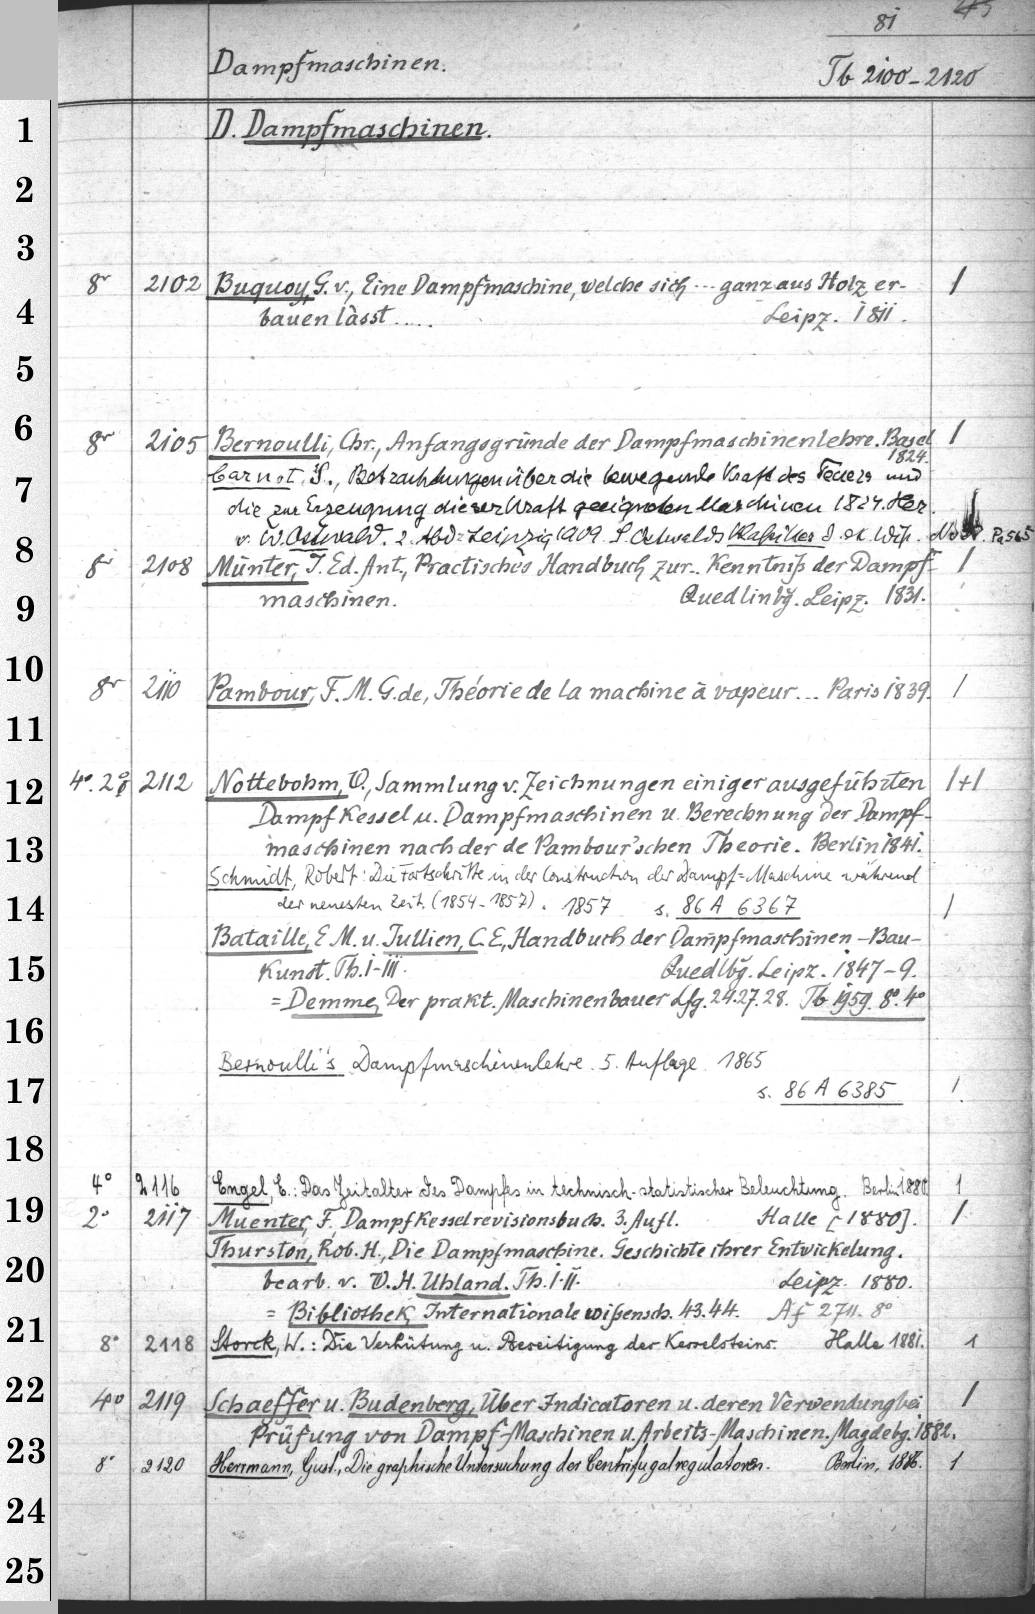 81 45
Dampfmaschinen. Tb 2100-2120
1 D. Dampfmaschinen.
2
3
8r 2102 Buquoy, G. v., Eine Dampfmaschine, welche sich ... ganz aus Holz er- 1
4 bauen lässt..... Leipz. 1811.
5
6 8r 2105 Bernoulli, Chr., Anfangsgründe der Dampfmaschinenlehre. Basel 1
1824.
7 Carnot, S., Betrachtungen über die bewegende Kraft des Feuers und
die zur Erzeugung dieser Kraft geeigneten Maschinen 1824. Her.
8 v. W. Ostwald. 2. Abd. Leipzig 1909. S. Ostwalds Klassiker d. ex. Wiss. No 37. Pa 565
8r 2108 Münter, J. Ed. Ant., Practisches Handbuch zur.. Kenntniß der Dampf- 1
9 maschinen. Quedlinbg. Leipz. 1831.
10 8r 2110 Pambour, F. M. G. de, Théorie de la machine à vapeur... Paris 1839. 1
11
12 4°. 2° 2112 Nottebohm, W., Sammlung v. Zeichnungen einiger ausgeführten 1+1
Dampfkessel u. Dampfmaschinen u. Berechnung der Dampf-
13 maschinen nach der de Pambour'schen Theorie. Berlin 1841.
Schmidt, Robert: Die Fortschritte in der Construction der Dampf-Maschine während
14 der neuesten Zeit. (1854-1857). 1857 s. 86 A 6367 1
Bataille, E. M. u. Jullien, C. E., Handbuch der Dampfmaschinen-Bau-
15 Kunst. Th. I-III. Quedlbg. Leipz. 1847-9.
= Demme, Der prakt. Maschinenbauer Lfg. 24.27.28. Tb 1959. 8°. 4°
16
Bernoulli's Dampfmaschinenlehre. 5. Auflage 1865
17 s. 86 A 6385 1
18
4° 2116 Engel, E.: Das Zeitalter des Dampfes in technisch-statistischer Beleuchtung. Berlin 1880 1
19 2° 2117 Muenter, F. Dampfkesselrevisionsbuch. 3. Aufl. Halle [1880]. 1
Thurston, Rob. H., Die Dampfmaschine. Geschichte ihrer Entwickelung.
20 bearb. v. W. H. Uhland. Th. I-II. Leipz. 1880.
= Bibliothek, Internationale wißensch. 43.44. Af 2711. 8°
21 8° 2118 Storck, W.: Die Verhütung u. Beseitigung der Kesselsteins. Halle 1881. 1
22 4° 2119 Schaeffer u. Budenberg, Über Indicatoren u. deren Verwendung bei 1
Prüfung von Dampf-Maschinen u. Arbeits-Maschinen. Magdebg. 1882.
23 8° 2120 Herrmann, Gust., Die graphische Untersuchung der Centrifugalregulatoren. Berlin, 1886. 1
24
25